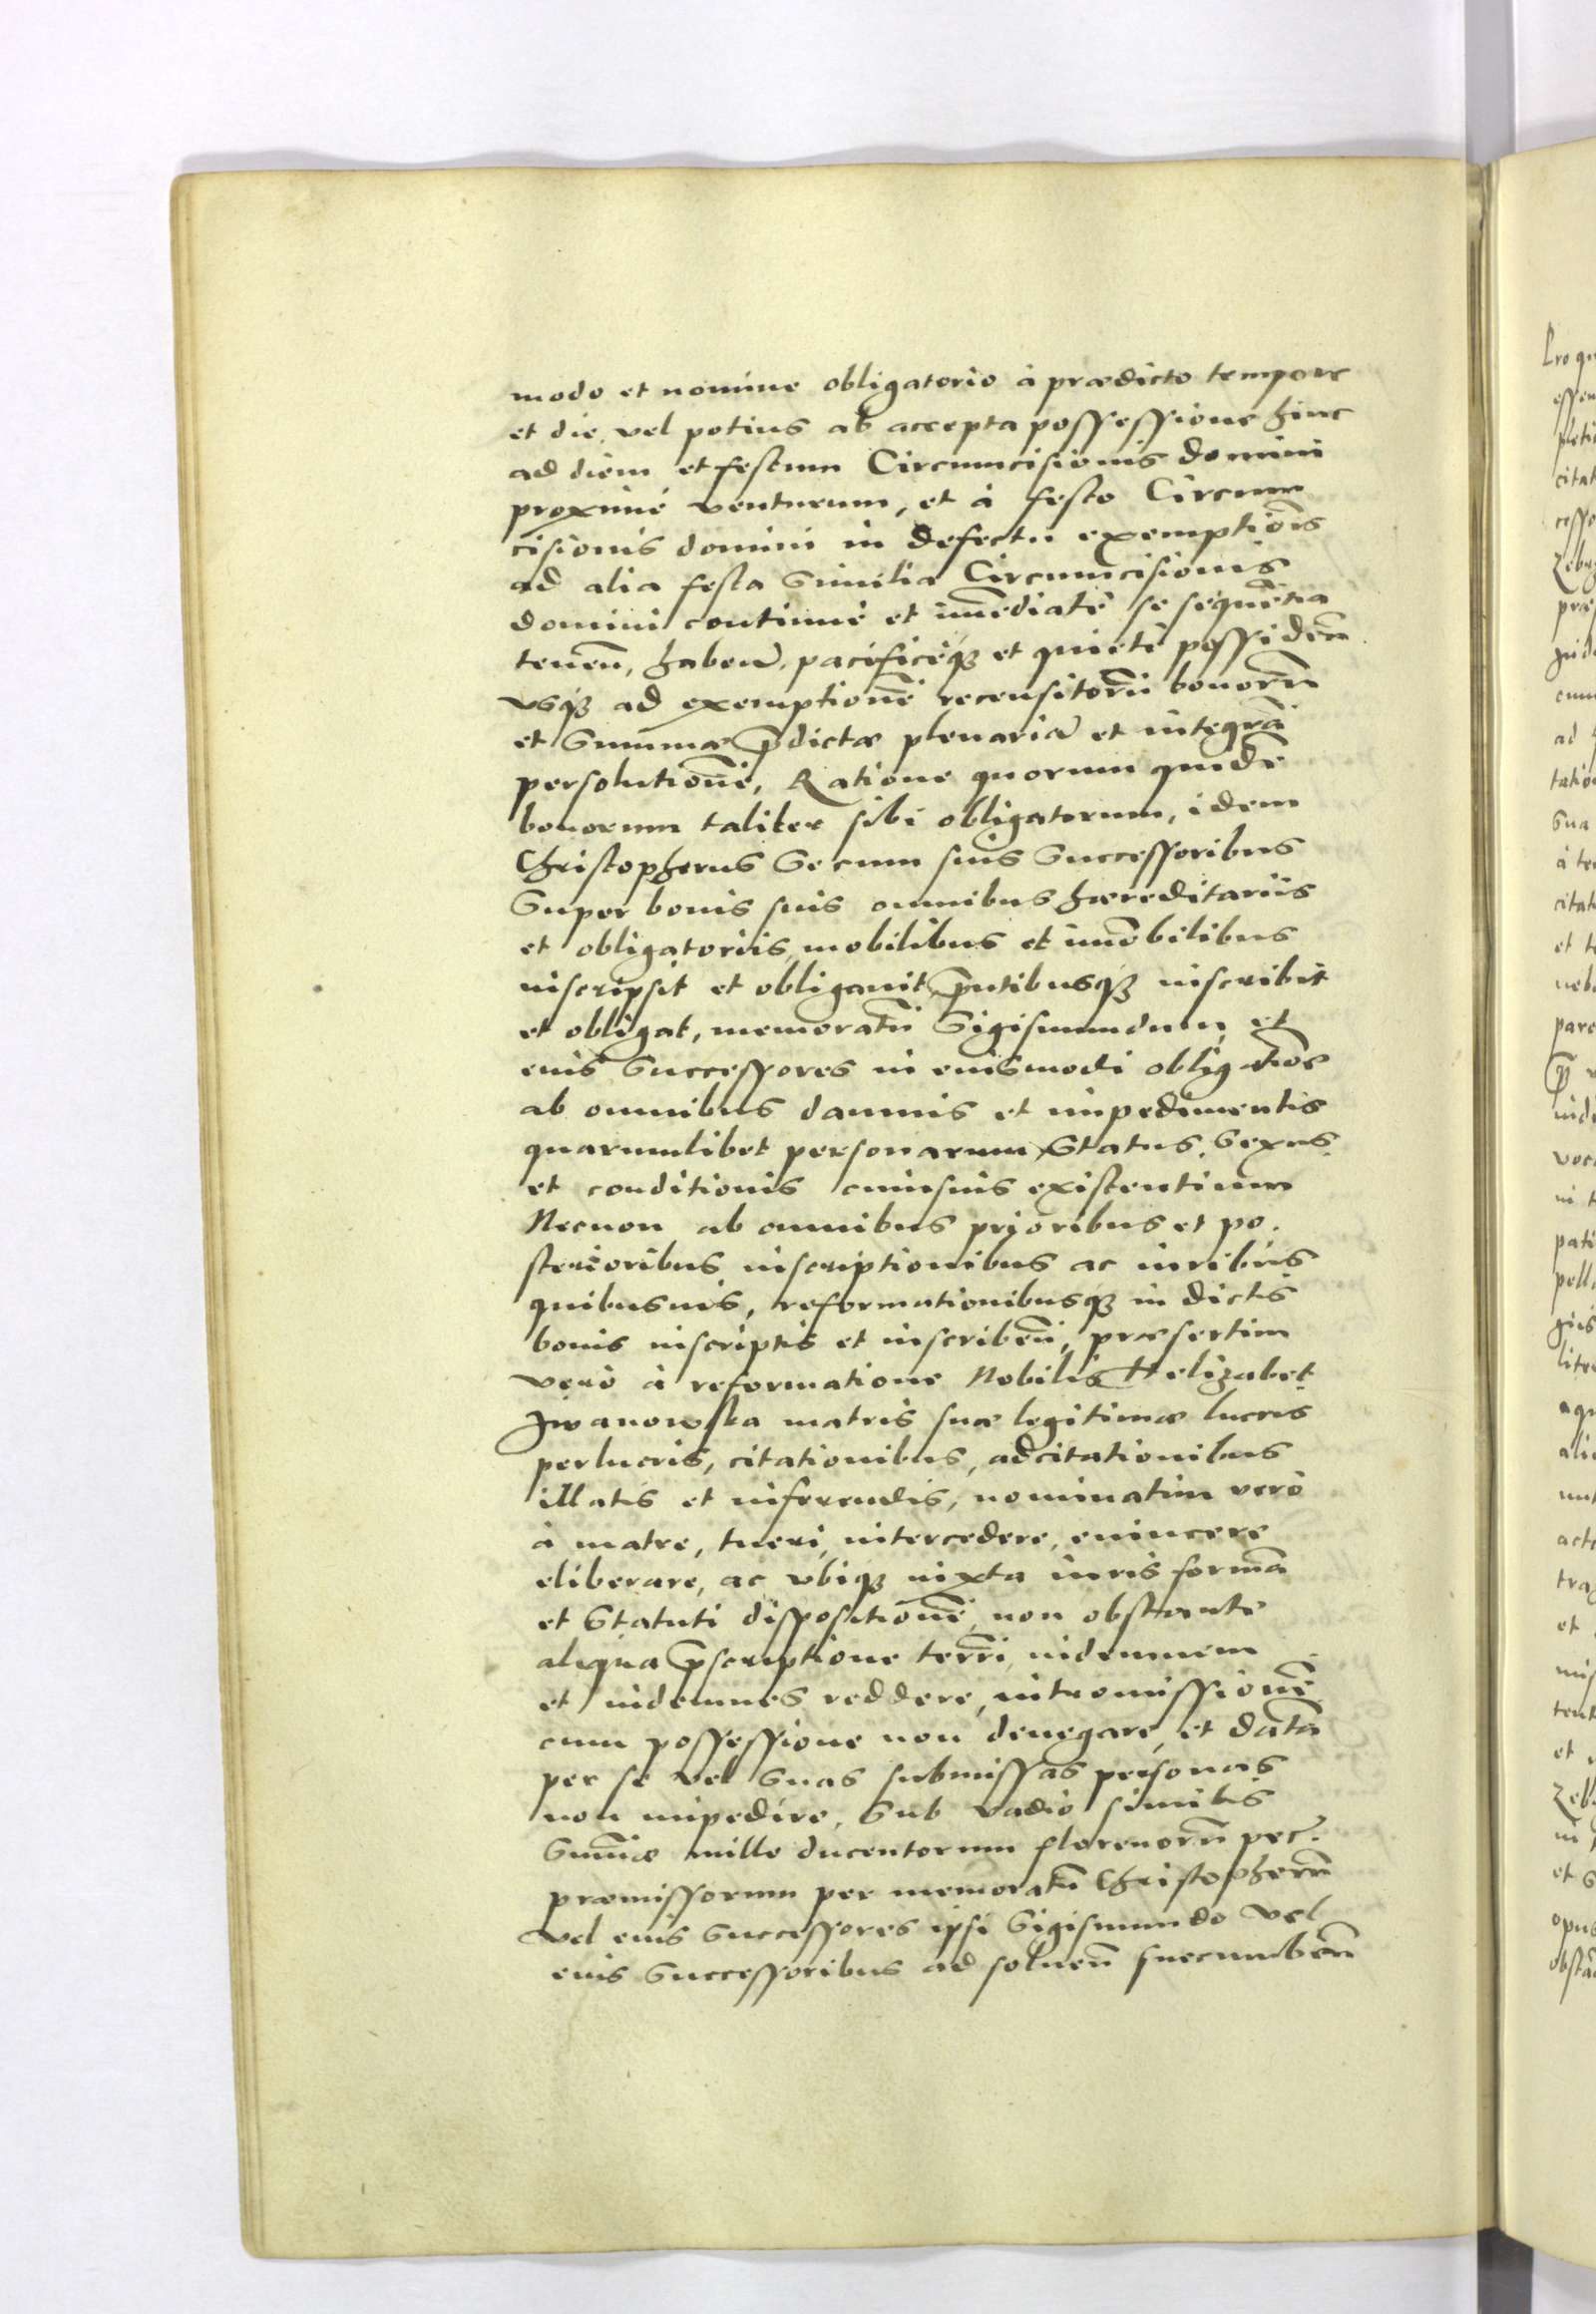 modo et nomine obligatorio à prædicto tempore
et die, vel potius ab accepta possessione hinc
ad diem et festum Circumcisionis domini
proximè venturum, et à festo Circum
cisionis domini in defectu exemptiōis
ad alia festa similia Circumcisionis
domini continuè et im̄ediatè se sequen̄tia
tenen̄, haben̄, pacificèqꝫ et quietè possiden̄
vsqꝫ ad exemptionē recensitorū bonorū
et summæ p̄dictæ plenariā et integrā
persolutionē, Ratione quorum quidē
bonorum taliter sibi obligatorum, idem
Christophorus se cum suis successoribus
super bonis suis omnibus hæreditariis
et obligatoriis, mobilibus et im̄obilibus
inscripsit et obligauit, p̄ntibusqꝫ inscribit
et obligat, memoratū Sigismundum, et
eius successores in eiusmodi obligatiōe
ab omnibus damnis et impedimentis
quarumlibet personarum, status, sexus,
et conditionis cuiusuis existentium
Necnon ab omnibus prioribus et po.
sterioribus inscriptionibus ac iuribus
quibusuis, reformationibusqꝫ in dictis
bonis inscriptis et inscriben̄, præsertim
verò à reformatione Nobilis Helizabet
Iwanowska matris suæ legitimæ lucris
perlucris, citationibus, adcitationibus
illatis et inferendis, nominatim verò
à matre, tueri, intercedere, euincere
eliberare, ac vbiqꝫ iuxta iuris formā
et Statuti dispositionē, non obstante
aliqua p̄scriptione terr̄i, indemnem
et indemnes reddere, intromissionē
cum possessione non denegare, et datā
per se vel suas submissas personas
non impedire, sub vadio similis
sum̄æ mille ducentorum florenorū pec̄.
præmissorum per memoratū Christopherū
vel eius successores ipsi Sigismundo vel
eius successoribus ad soluen̄ succumben̄